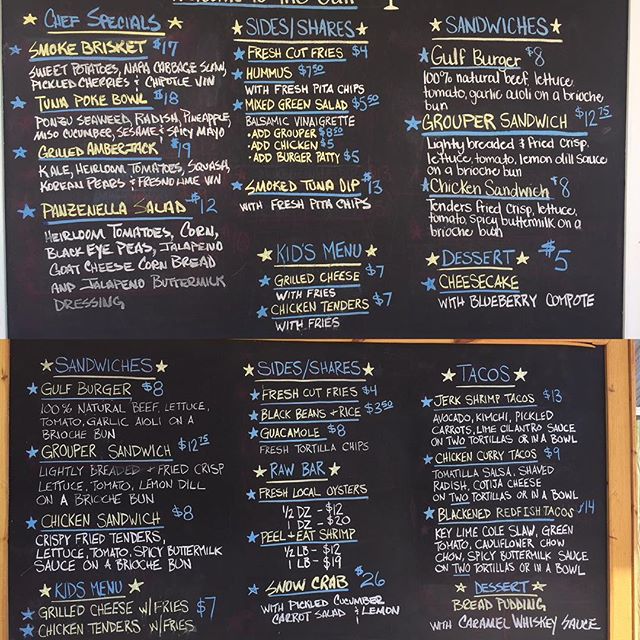 Welcome to the
CHEF SPECIALS
SMOKE BRISKET $17
SWEET POTATOES, NAPA CABBAGE SLAW,
PICKLED CHERRIES + CHIPOTLE VIN
TUNA POKE BOWL $18
PONZU SEAWEED, RADISH, PINEAPPLE,
MISO CUCUMBER, SESAME & SPICY MAYO
GRILLED AMBERJACK $19
KALE, HEIRLOOM TOMATOES, SQUASH,
KOREAN PEARS & FRESNO LIME VIN
PANZENELLA SALAD $12
HEIRLOOM TOMATOES, CORN,
BLACK EYE PEAS, JALAPENO
GOAT CHEESE CORN BREAD
AND JALAPENO BUTTERMILK
DRESSING
SIDES/SHARES
FRESH CUT FRIES $4
HUMMUS $7.50
WITH FRESH PITA CHIPS
MIXED GREEN SALAD $5.50
BALSAMIC VINAIGRETTE
• ADD GROUPER $8.50
• ADD CHICKEN $5
• ADD BURGER PATTY $5
SMOKED TUNA DIP $13
WITH FRESH PITA CHIPS
KID'S MENU
GRILLED CHEESE $7
WITH FRIES
CHICKEN TENDERS $7
WITH FRIES
SANDWICHES
Gulf Burger $8
100% natural beef, lettuce,
tomato, garlic aioli on a brioche
bun
GROUPER SANDWICH $12.75
Lightly breaded & fried crisp,
lettuce, tomato, lemon dill sauce
on a brioche bun
Chicken Sandwich $8
Tenders fried crisp, lettuce,
tomato, spicy buttermilk on a
brioche bun
DESSERT $5
CHEESECAKE
WITH BLUEBERRY COMPOTE
SANDWICHES
GULF BURGER $8
100% NATURAL BEEF, LETTUCE,
TOMATO, GARLIC AIOLI ON A
BRIOCHE BUN
GROUPER SANDWICH $12.75
LIGHTLY BREADED + FRIED CRISP
LETTUCE, TOMATO, LEMON DILL
ON A BRIOCHE BUN
CHICKEN SANDWICH $8
CRISPY FRIED TENDERS,
LETTUCE, TOMATO, SPICY BUTTERMILK
SAUCE ON A BRIOCHE BUN
KIDS MENU
GRILLED CHEESE W/FRIES $7
CHICKEN TENDERS W/FRIES
SIDES/SHARES
FRESH CUT FRIES $4
BLACK BEANS + RICE $3.50
GUACAMOLE $8
FRESH TORTILLA CHIPS
RAW BAR
FRESH LOCAL OYSTERS
1/2 DZ - $12
1 DZ - $20
PEEL + EAT SHRIMP
1/2 LB - $12
1 LB - $19
SNOW CRAB $26
WITH PICKLED CUCUMBER
CARROT SALAD & LEMON
TACOS
JERK SHRIMP TACOS $13
AVOCADO, KIMCHI, PICKLED
CARROTS, LIME CILANTRO SAUCE
ON TWO TORTILLAS OR IN A BOWL
CHICKEN CURRY TACOS $9
TOMATILLA SALSA, SHAVED
RADISH, COTIJA CHEESE
ON TWO TORTILLAS OR IN A BOWL
BLACKENED REDFISH TACOS $14
KEY LIME COLE SLAW, GREEN
TOMATO, CAULIFLOWER, CHOW
CHOW, SPICY BUTTERMILK SAUCE
ON TWO TORTILLAS OR IN A BOWL
DESSERT
BREAD PUDDING
WITH CARAMEL WHISKEY SAUCE